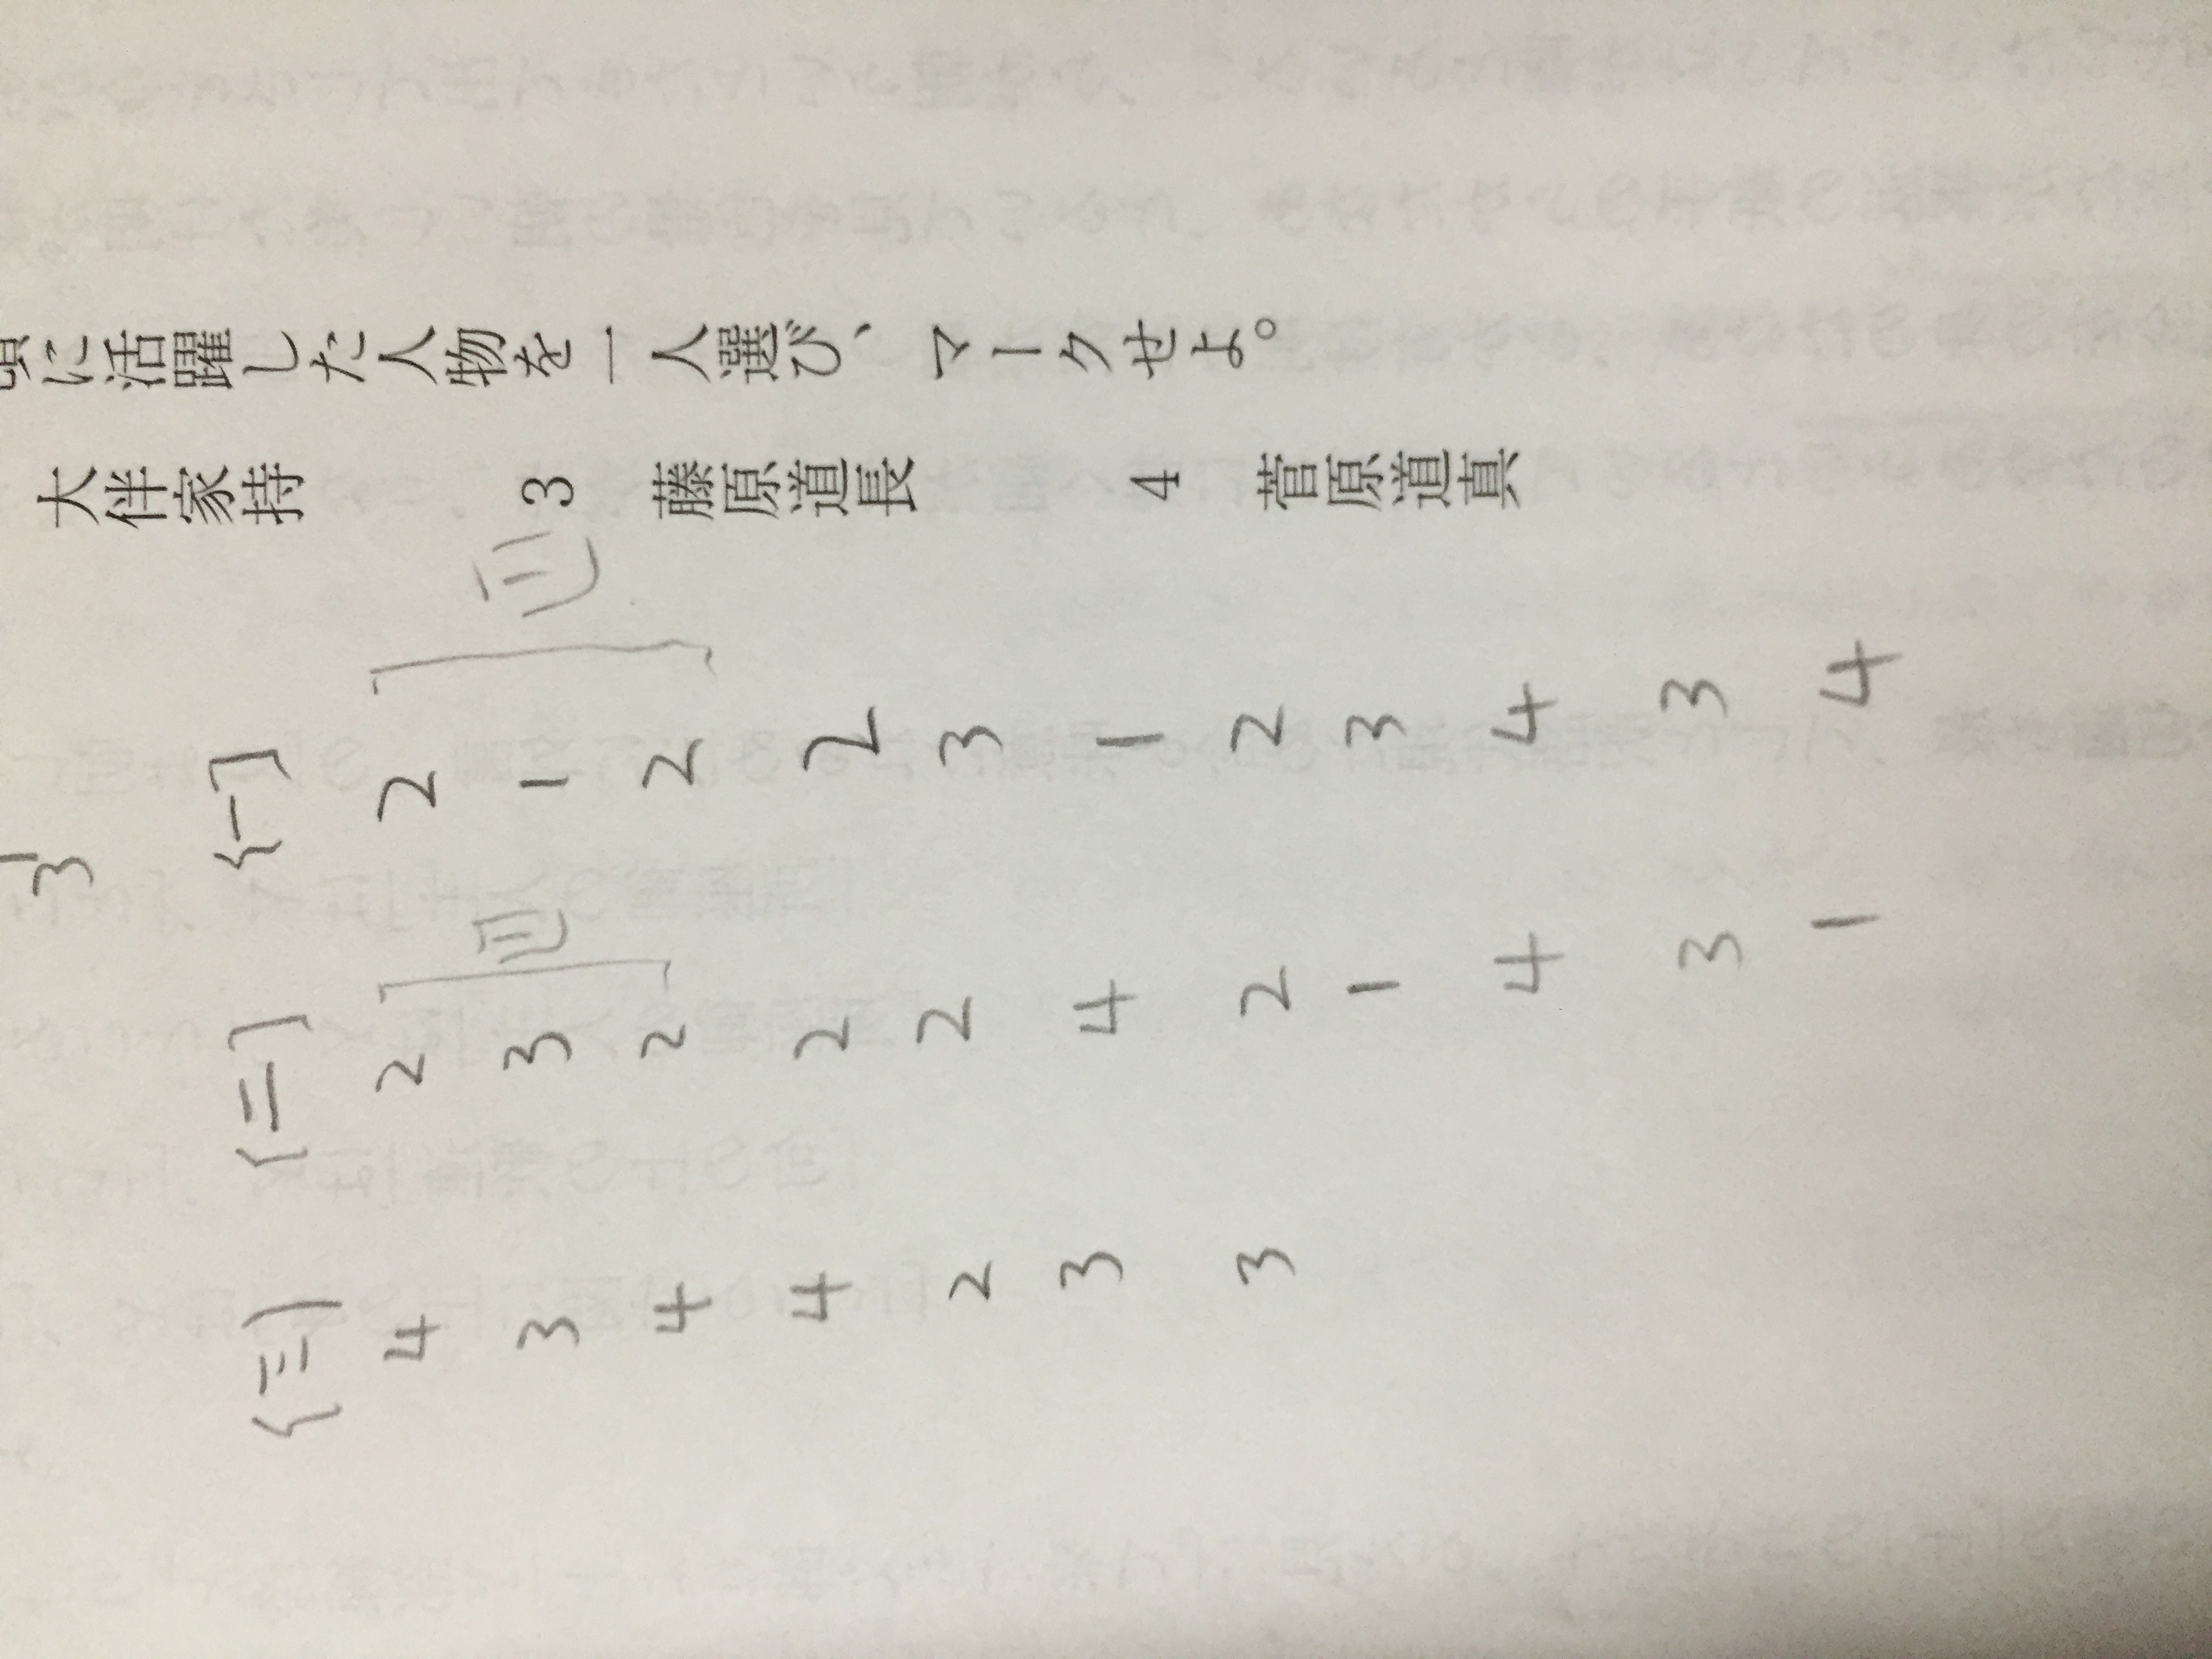 頃に活躍した人物を一人選び、マークせよ。
大伴家持 3 藤原道長 4 菅原道真
3
(一) 2 1 2 2 3 1 2 3 4 3 4
(二) 2 3 2 2 2 4 2 1 4 3 1
(三) 4 3 4 4 2 3 3